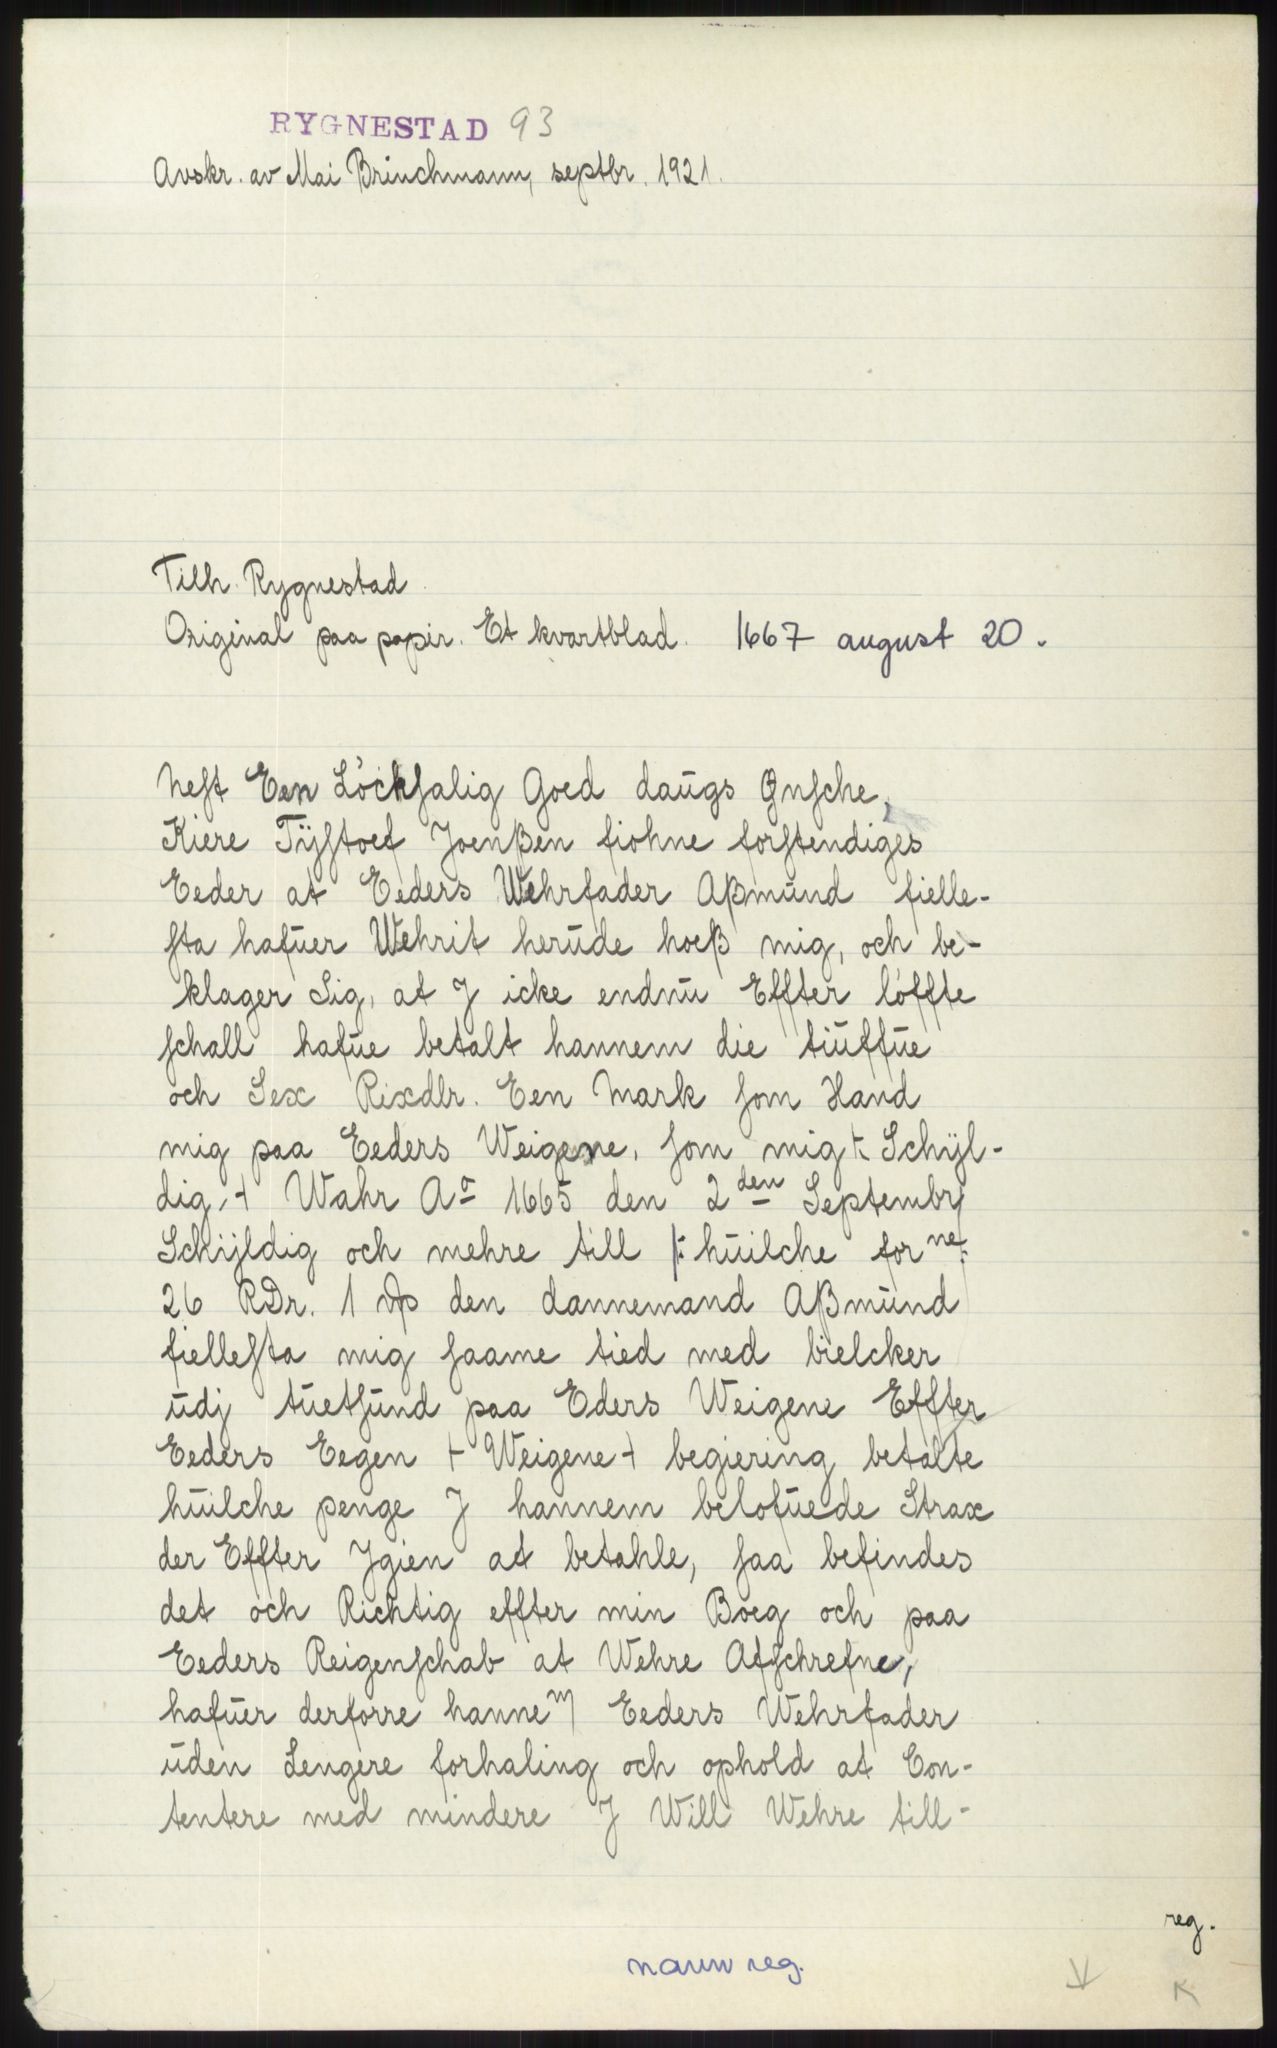 RYGNESTAD 93
Avskr. av Mai Brinchmann, septbr. 1921.
Tilh. Rygnestad.
Original paa papir. Et kvartblad. 1667 august 20.
Nest Een Löcksalig Goed daugs Ønsche,
Kiere Tijstoef Joenßen fiohne forstendiges
Eeder at Eeders Wehrfader Aßmund fielle-
sta hafuer Wehrit herude hoeß mig, och be-
klager Sig, at J icke endnu Effter löffte
schall hafue betalt hannem die tiuffue
och Sex Rixdlr. Een Mark som Hand
mig paa Eeders Weigene, som mig ⊢ Schijl-
dig, ⊣ Wahr Aº 1665 den 2den Septembr
Schijldig och mehre till |: huilche forne:
26 RDr. 1 den dannemand Aßmund
fiellesta mig saame tied med bielcker
udj tuetsund paa Eders Weigene Effter
Eeders Eegen ⊢ Weigene ⊣ begiering betalte
huilche penge J hannem belofuede Strax
der Effter Jgien at betahle, saa befindes
det och Richtig effter min Boeg och paa
Eeders Reigenschab at Wehre Afschrefne,
hafuer derforre hannem Eeders Wehrfader
uden Lengere forhaling och ophold at Con-
tentere med mindere J Will Wehre till-
reg.
navn reg.
K